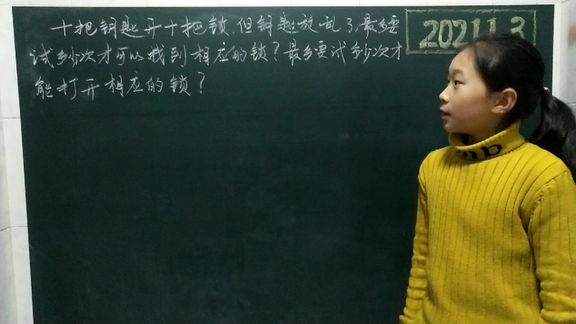 十把钥匙开十把锁，但钥匙放乱了，最多要
试多少次才可以找到相应的锁？最多要试多少次才
能打开相应的锁？
2021.1.3